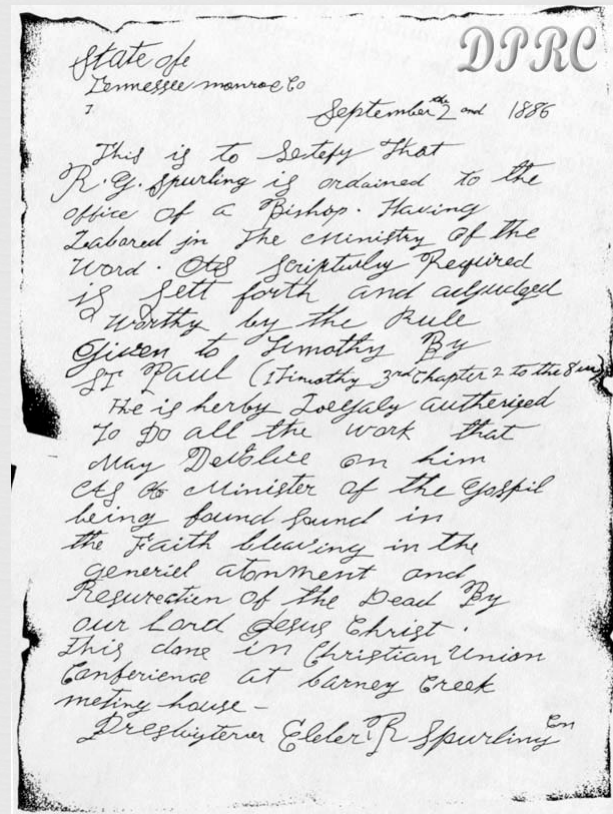 DPRC
State of
Tennessee monroe Co
September the 2 ond 1886
This is to Setefy That
R. G. Spurling is ordained to the
office of a Bishop. Having
Labored in The Ministry of the
Word. As Scripturly Required
is Sett forth and adjudged
Worthy by the Rule
Given to Timothy By
ST Paul (1 Timothy 3rd Chapter 2 to the 8
He is herby Loegaly autherized
To Do all the work that
May Devolve on him
As A Minister of the Gospil
being found Sound in
the Faith bleaving in the
generiel atonment and
Resurection of the Dead By
our Lord Jesus Christ.
This done in Christian Union
Conferience at barney Creek
meting house -
Elder R Spurling